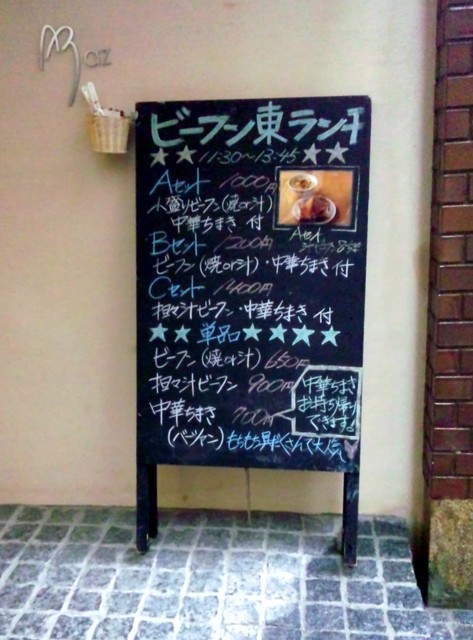 ビーフン東ランチ
★★11:30〜13:45★★
Aセット 1000円
小盛りビーフン(焼or汁)
中華ちまき 付
Aセット
Bセット 1200円
ビーフン(焼or汁)・中華ちまき 付
Cセット 1400円
担々汁ビーフン・中華ちまき 付
★★単品★★★★
ビーフン(焼or汁) 650円
担々汁ビーフン 900円
中華ちまき 700円
(バーツァン)
中華ちまき
お持ち帰り
できます!